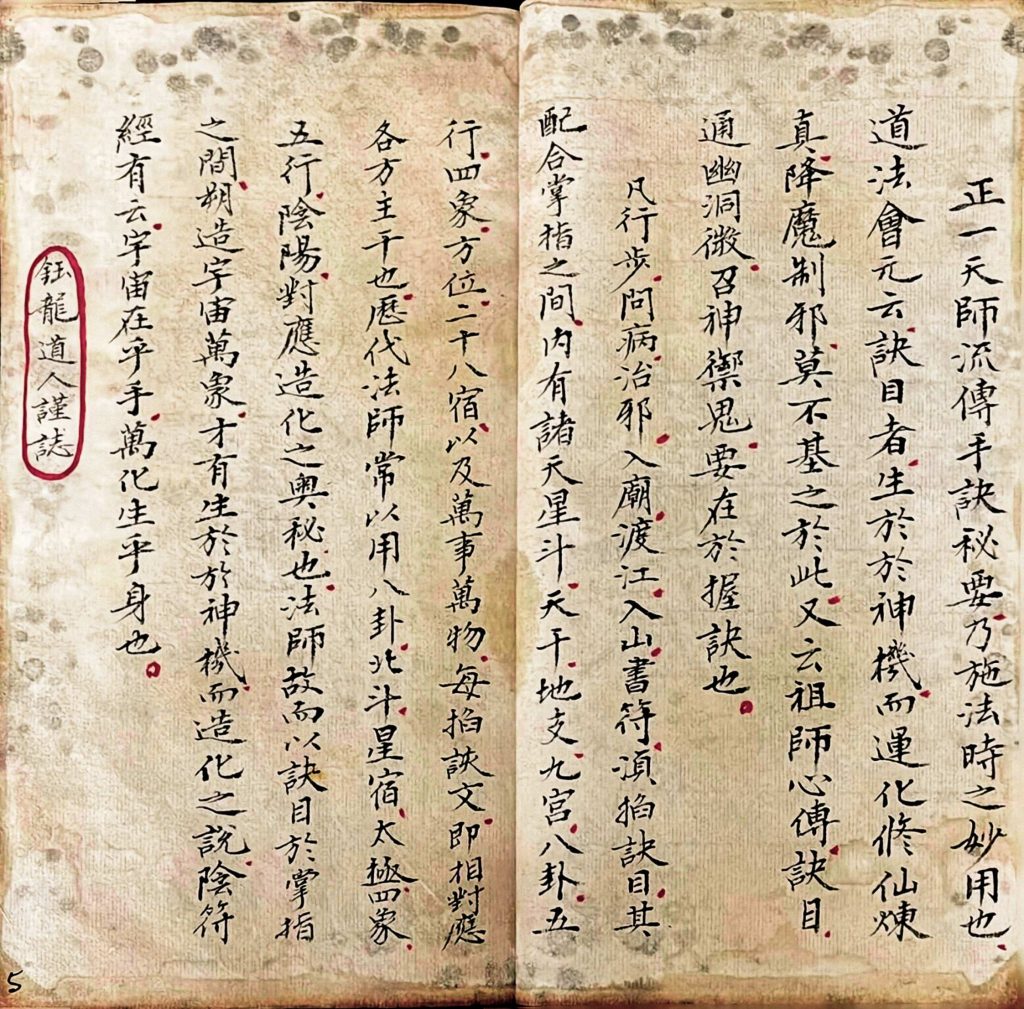 正一天師流傳手訣秘要乃施法時之妙用也
道法會元云訣目者生於於神機而運化修仙煉
真降魔制邪莫不基之於此又云祖師心傳訣目
通幽洞微召神禦鬼要在於握訣也
凡行步問病治邪入廟渡江入山書符須掐訣目其
配合掌指之間內有諸天星斗天干地支九宮八卦五
行四象方位二十八宿以及萬事萬物每掐訣文即相對應
各方主干也歷代法師常以用八卦北斗星宿太極四象
五行陰陽對應造化之奧秘也法師故而以訣目於掌指
之間朔造宇宙萬象才有生於於神機而造化之說陰符
經有云宇宙在乎手萬化生乎身也
鈺龍道人謹誌
5